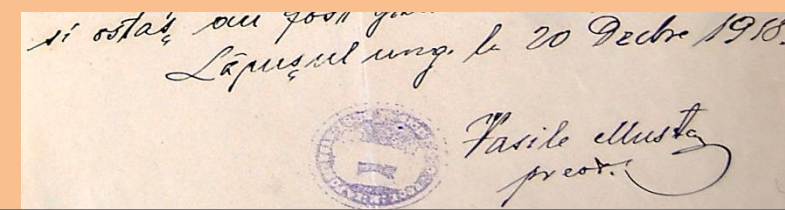 și ostaș au fost
Lăpușul ung. la 20 Decbre 1918.
Vasile Musta
preot.